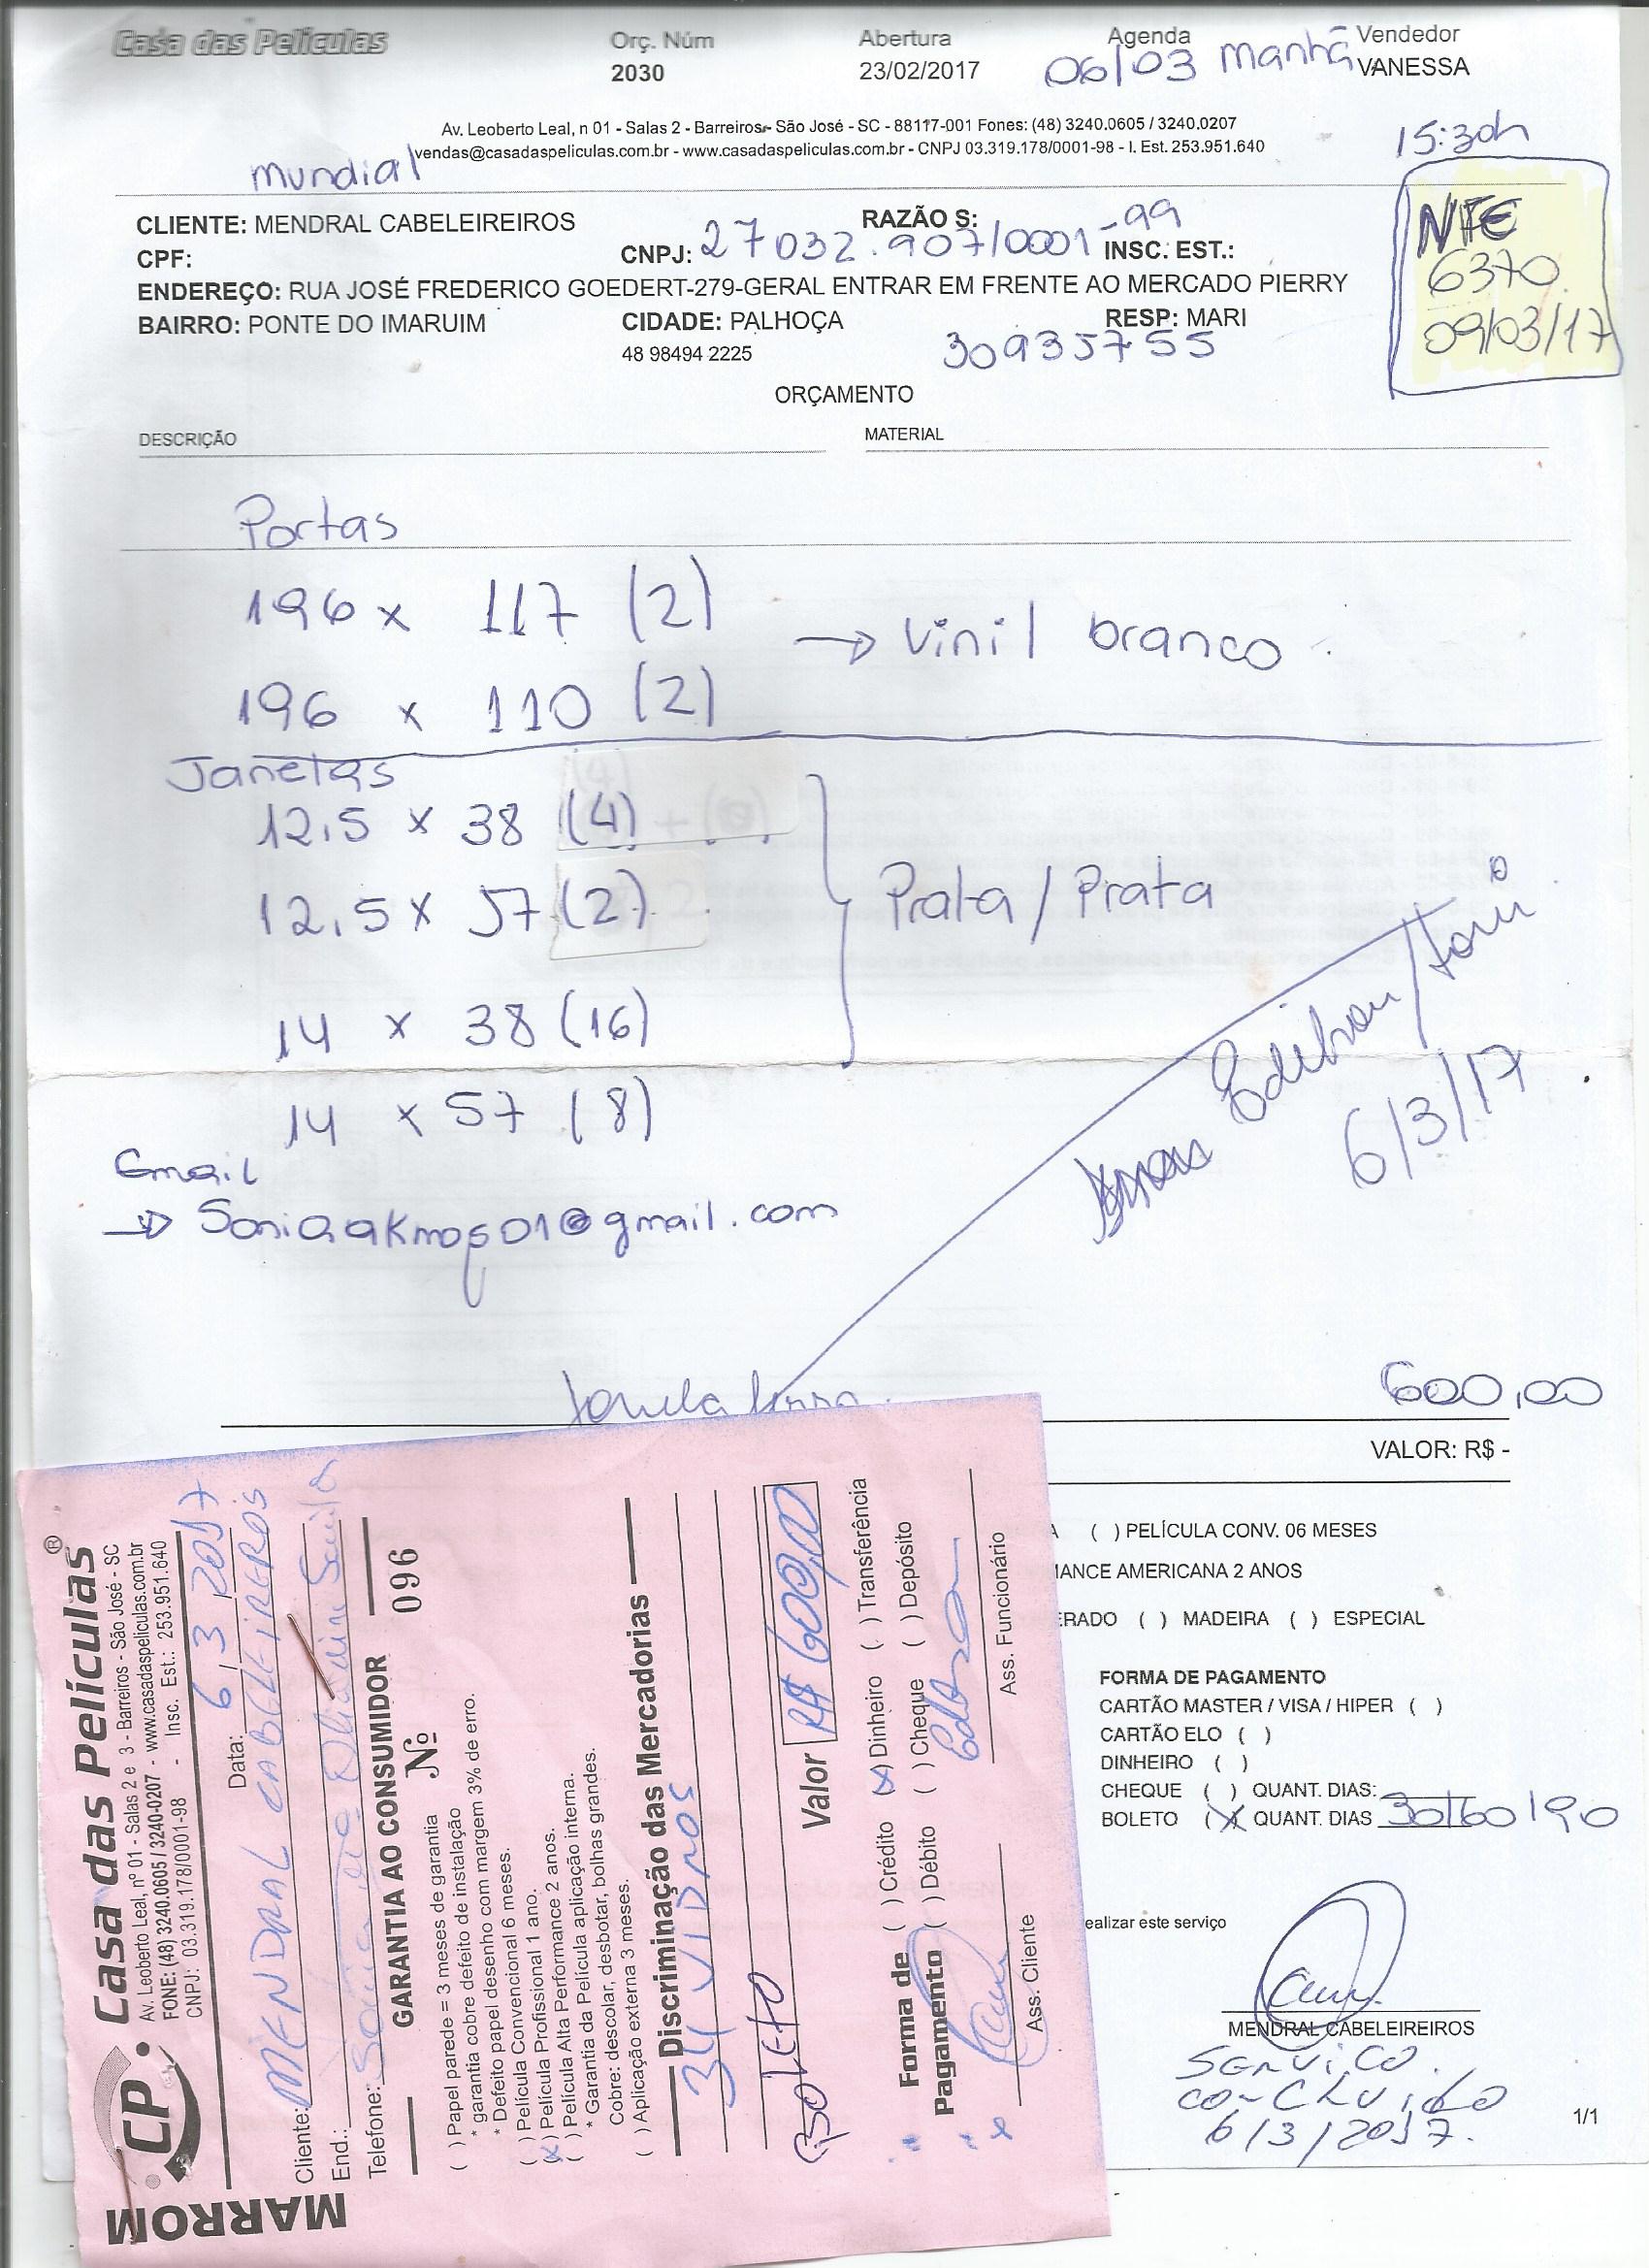 Casa das Películas
Orç. Núm Abertura Agenda Vendedor
2030 23/02/2017 06/03 manhã VANESSA
Av. Leoberto Leal, n 01 - Salas 2 - Barreiros - São José - SC - 88117-001 Fones: (48) 3240.0605 / 3240.0207
vendas@casadaspeliculas.com.br - www.casadaspeliculas.com.br - CNPJ 03.319.178/0001-98 - I. Est. 253.951.640
15:30h
mundial
CLIENTE: MENDRAL CABELEIREIROS RAZÃO S:
CPF: CNPJ: 27032.907/0001-99 INSC. EST.:
ENDEREÇO: RUA JOSÉ FREDERICO GOEDERT-279-GERAL ENTRAR EM FRENTE AO MERCADO PIERRY
BAIRRO: PONTE DO IMARUIM CIDADE: PALHOÇA RESP: MARI
48 98494 2225 30935755
NFE
6370
09/03/17
ORÇAMENTO
DESCRIÇÃO MATERIAL
Portas
196 x 117 (2)
→ Vinil branco
196 x 110 (2)
Janelas
12,5 x 38 (4)
12,5 x 57 (2)
Prata / Prata
14 x 38 (16)
14 x 57 (8)
6/3/17
Email
→
@gmail.com
600,00
VALOR: R$ -
( ) PELÍCULA CONV. 06 MESES
MANCE AMERICANA 2 ANOS
ERADO ( ) MADEIRA ( ) ESPECIAL
FORMA DE PAGAMENTO
CARTÃO MASTER / VISA / HIPER ( )
CARTÃO ELO ( )
DINHEIRO ( )
CHEQUE ( ) QUANT. DIAS:
BOLETO (X) QUANT. DIAS 30/60/90
ealizar este serviço
MENDRAL CABELEIREIROS
SERVIÇO
CONCLUIDO
6/3/2017.
1/1
MARROM
CP
Casa das Películas®
Av. Leoberto Leal, nº 01 - Salas 2 e 3 - Barreiros - São José - SC
FONE: (48) 3240.0605 / 3240-0207 - www.casadaspeliculas.com.br
CNPJ: 03.319.178/0001-98 - Insc. Est.: 253.951.640
Data: 6 / 3 / 2017
Cliente: MENDRAL CABELEIREROS
End.:
Telefone:
GARANTIA AO CONSUMIDOR
Nº 096
( ) Papel parede = 3 meses de garantia
* garantia cobre defeito de instalação
* Defeito papel desenho com margem 3% de erro.
( ) Película Convencional 6 meses.
(x) Película Profissional 1 ano.
( ) Película Alta Performance 2 anos.
* Garantia da Película aplicação interna.
Cobre: descolar, desbotar, bolhas grandes.
( ) Aplicação externa 3 meses.
Discriminação das Mercadorias
34 VIDROS
BOLETO
Valor R$ 600,00
Forma de Pagamento
( ) Crédito (x) Dinheiro ( ) Transferência
( ) Débito ( ) Cheque ( ) Depósito
Ass. Cliente Ass. Funcionário